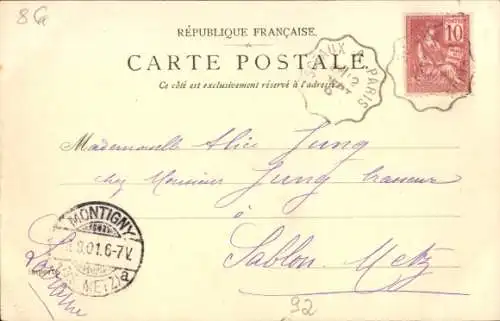 8 G
RÉPUBLIQUE FRANÇAISE.
CARTE POSTALE
Ce côté est exclusivement réservé à l'adresse
SCEAUX A PARIS
10
Mademoiselle Alice Jung
chez Monsieur Jung brasseur
à
Sablon Metz
MONTIGNY
9.01.6-7V.
METZ) a
92